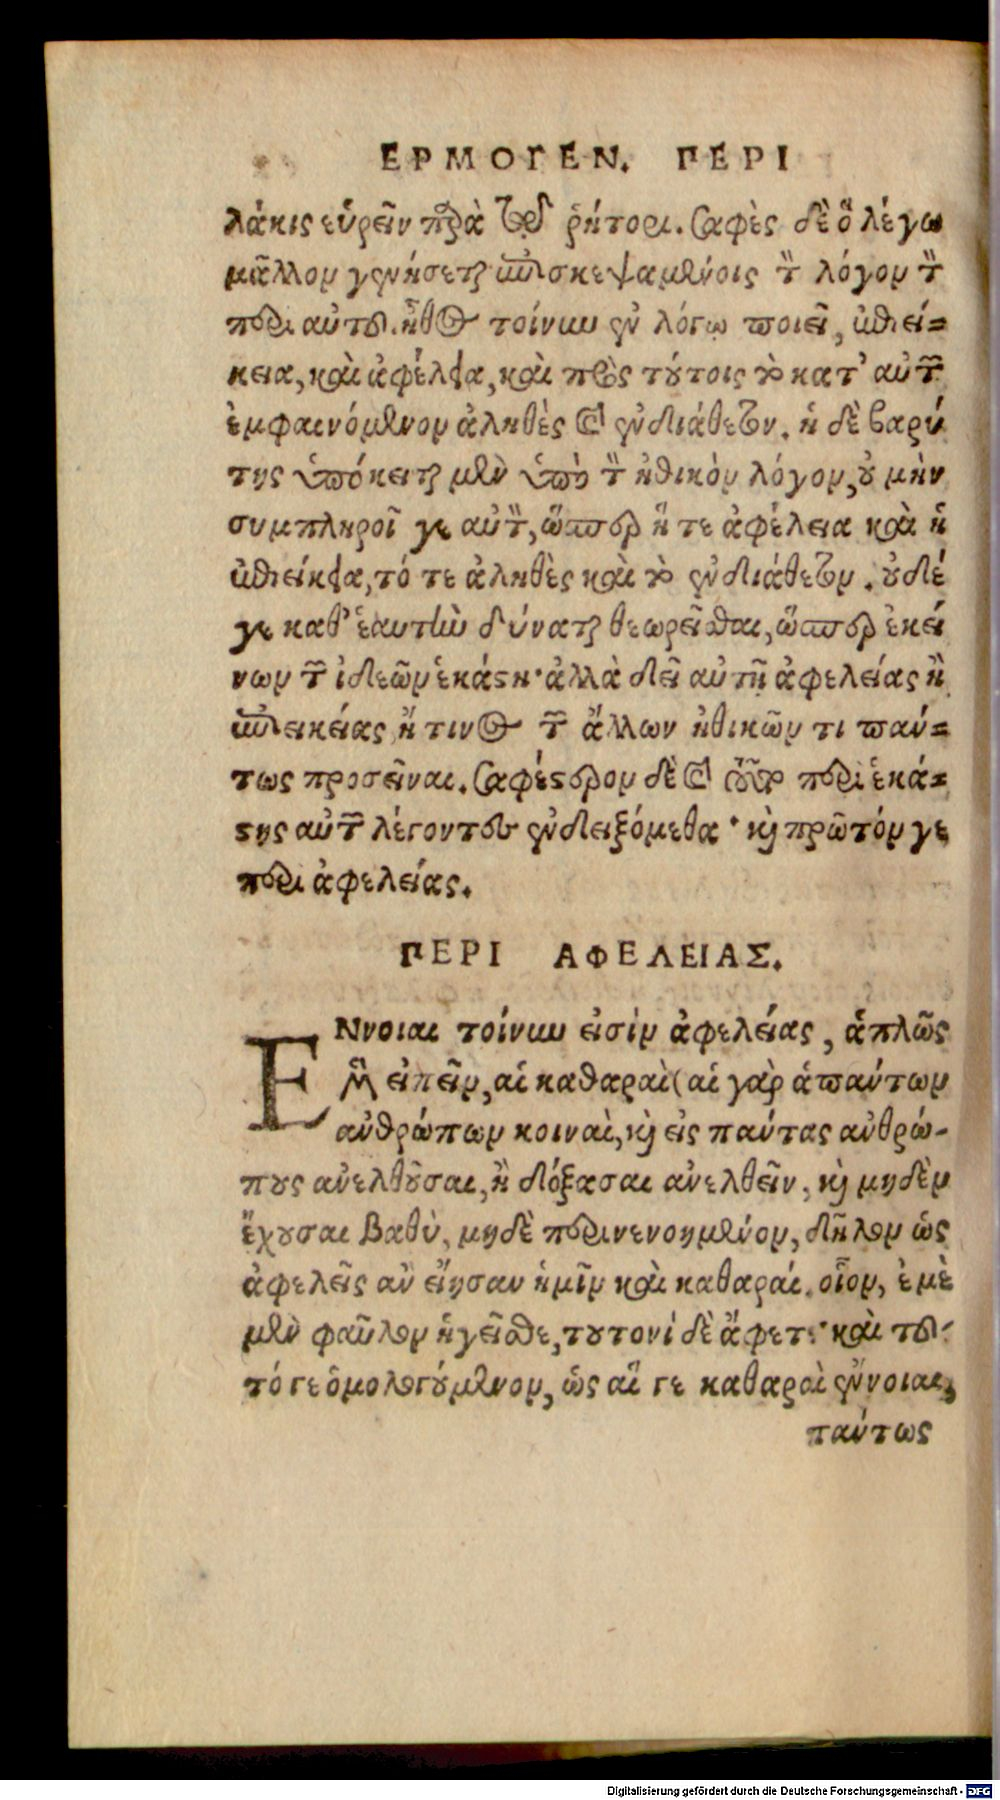 ΕΡΜΟΓΕΝ. ΠΕΡΙ
λάκις εὑρεῖν παρὰ τῷ ῥήτορι. σαφὲς δὲ ὃ λέγω
μᾶλλον γενήσεται ἐπισκεψαμένοις τὸν λόγον τὸν
περὶ αὐτοῦ. ἦθος τοίνυν ἐν λόγῳ ποιεῖ, ἐπιεί=
κεια, καὶ ἀφέλεια, καὶ πρὸς τούτοις τὸ κατ' αὐτῶν
ἐμφαινόμενον ἀληθὲς καὶ ἐνδιάθετον. ἡ δὲ βαρύ
της ὑπόκειται μὲν ὑπὸ τὸν ἠθικὸν λόγον, οὐ μὴν
συμπληροῖ γε αὐτὸν, ὥσπερ ἥ τε ἀφέλεια καὶ ἡ
ἐπιείκεια, τό τε ἀληθὲς καὶ τὸ ἐνδιάθετον. οὐδέ
γε καθ' ἑαυτὴν δύναται θεωρεῖσθαι, ὥσπερ ἐκεί
νων τῶν ἰδεῶν ἑκάστη· ἀλλὰ δεῖ αὐτῇ ἀφελείας ἢ
ἐπιεικείας ἤ τινος τῶν ἄλλων ἠθικῶν τι πάν=
τως προσεῖναι. σαφέστερον δὲ καὶ τοῦτο περὶ ἑκά=
στης αὐτῶν λέγοντες ἐνδειξόμεθα· καὶ πρῶτόν γε
περὶ ἀφελείας.
ΠΕΡΙ ΑΦΕΛΕΙΑΣ.
ΕΝνοιαι τοίνυν εἰσὶν ἀφελείας, ἁπλῶς
μὲν εἰπεῖν, αἱ καθαραὶ (αἱ γὰρ ἁπάντων
ἀνθρώπων κοιναὶ, καὶ εἰς πάντας ἀνθρώ-
πους ἀνελθοῦσαι, ἢ δόξασαι ἀνελθεῖν, καὶ μηδὲν
ἔχουσαι βαθὺ, μηδὲ περινενοημένον, δῆλον ὡς
ἀφελεῖς ἂν εἴησαν ἡμῖν καὶ καθαραί. οἷον, ἐμὲ
μὲν φαῦλον ἡγεῖσθε, τουτονὶ δὲ ἄφετε· καὶ τοῦ-
τό γε ὁμολογούμενον, ὡς αἵ γε καθαραὶ ἔννοιαι,
πάντως
Digitalisierung gefördert durch die Deutsche Forschungsgemeinschaft - DFG